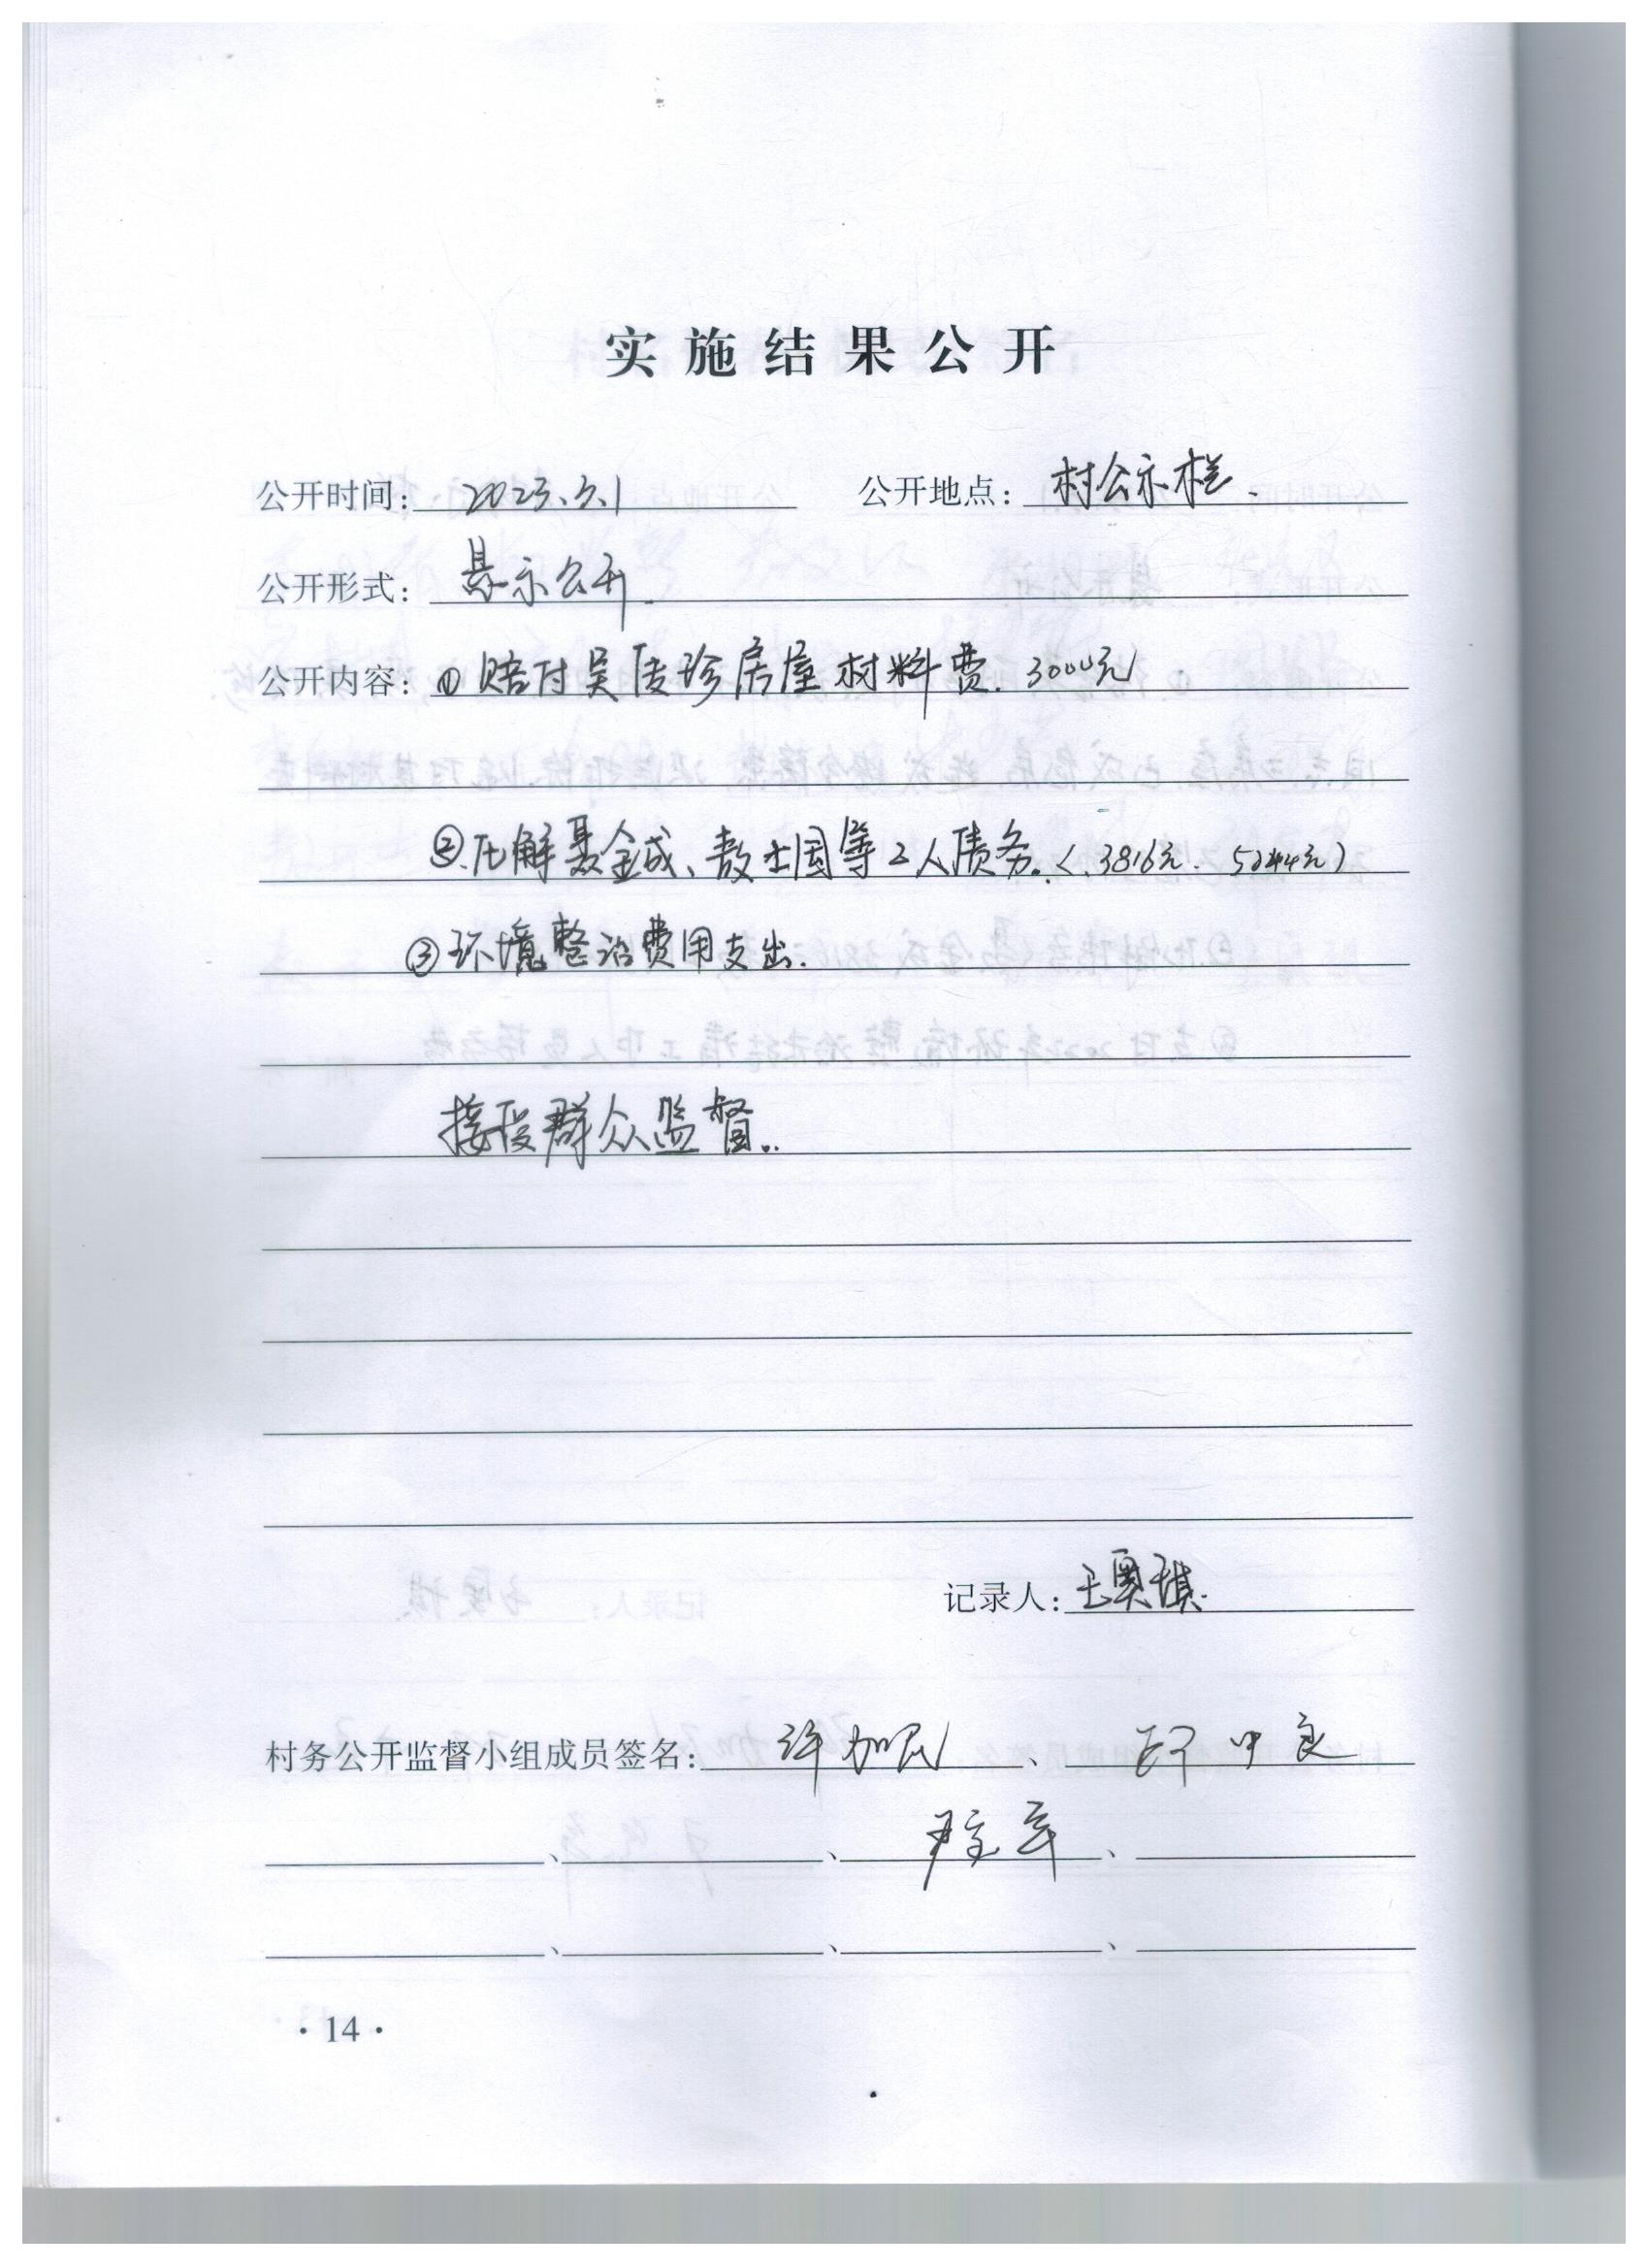 实施结果公开
公开时间：2023.3.1 公开地点：村公示栏.
公开形式：悬示公开.
公开内容：①赔付吴传珍房屋材料费.3000元
②.化解聂金成、敖士国等2人债务.(3816元. 5244元)
③环境整治费用支出.
接受群众监督.
记录人：王奥琪.
村务公开监督小组成员签名：许加民、中良
、、、
、、、
·14·